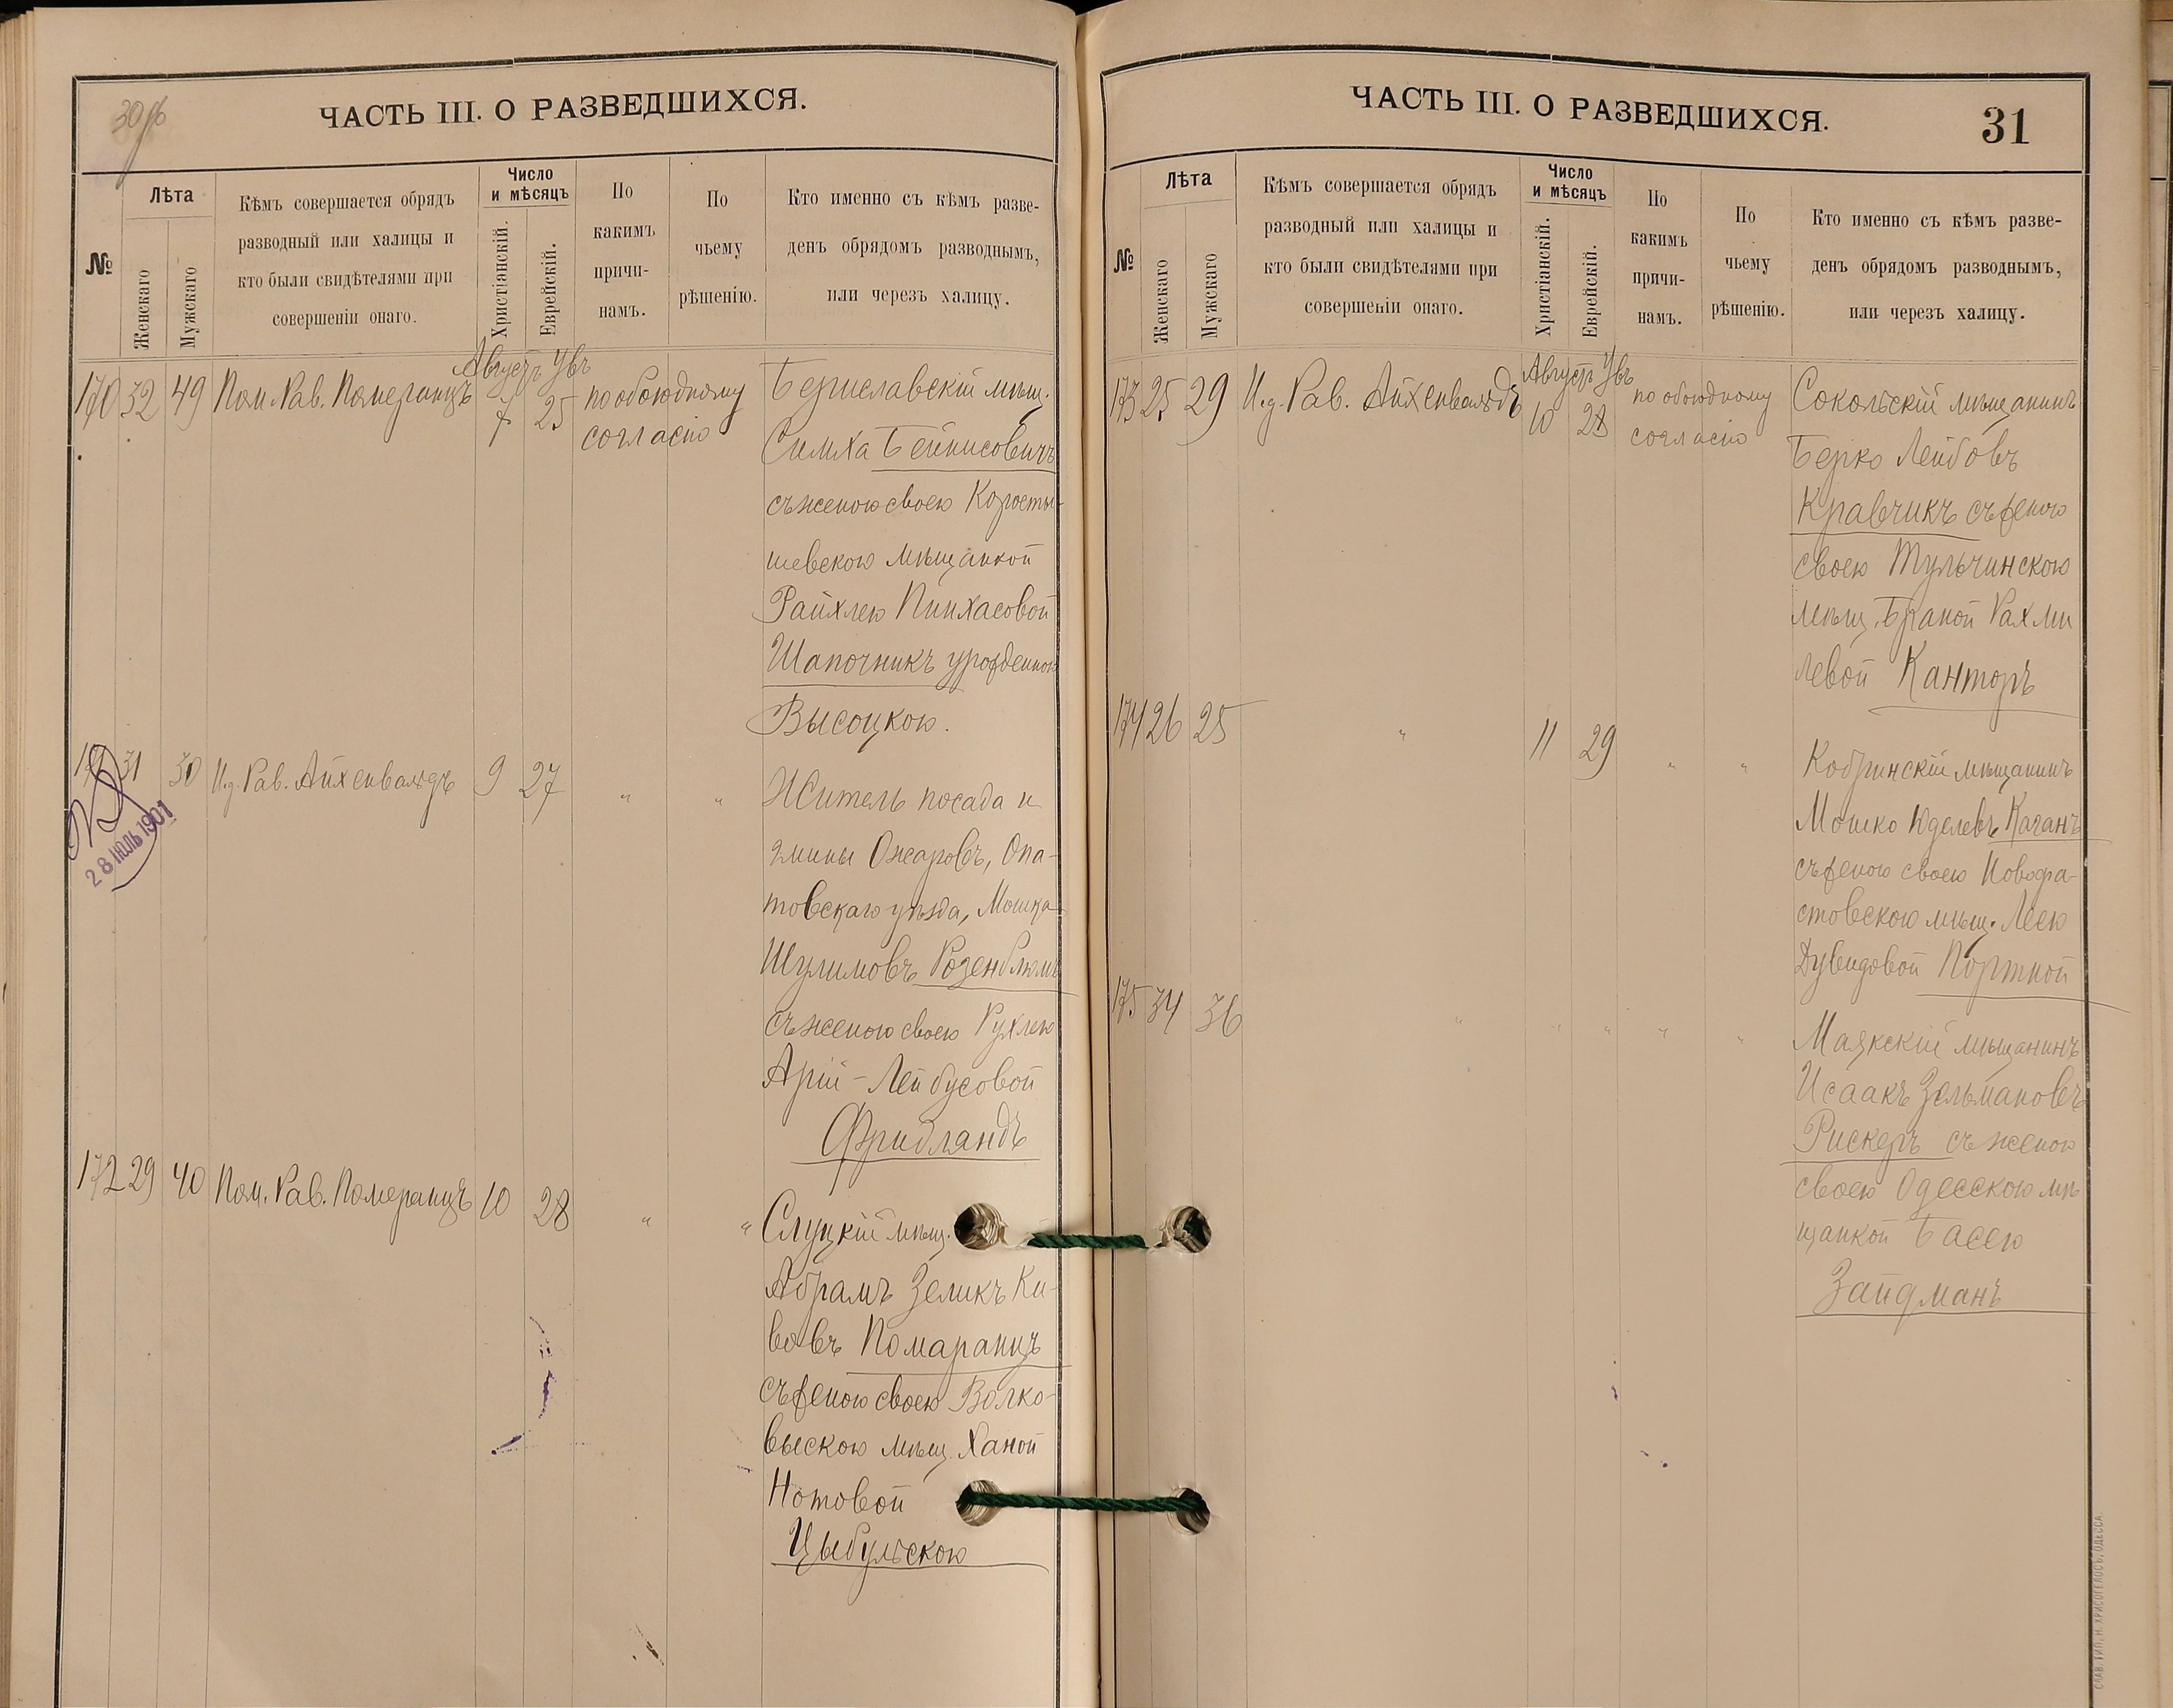 30 об
ЧАСТЬ III. О РАЗВЕДШИХСЯ.
№
Лѣта
Женскаго
Мужскаго
Кѣмъ совершается обрядъ
разводный или халицы и
кто были свидѣтелями при
совершеніи онаго.
Число
и мѣсяцъ
Христіанскій.
Еврейскій.
По
какимъ
причи-
намъ.
По
чьему
рѣшенію.
Кто именно съ кѣмъ разве-
денъ обрядомъ разводнымъ,
или черезъ халицу.
Августъ Увъ
170 32 49 Пом. Рав. Померанцъ 7 25 по обоюдному
согласію
Бериславскій мѣщ.
Симха Бейнисовичъ
съ женою своею Коросты-
шевскою мѣщанкой
Райхлею Пинхасовой
Шапочникъ урожденною
Высоцкою.
171 31 30 И.д. Рав. Айхенвальдъ 9 27 " "
Житель посада и
гмины Ожаровъ, Опа-
товскаго уѣзда, Мошка
Шулимовъ Розенблюмъ
съ женою своею Рухлею
Арій-Лейбусовой
Фридландъ
28 ІЮЛЬ 1901
172 29 40 Пом. Рав. Померанцъ 10 28 " "
Слуцкій мѣщ.
Абрамъ Зеликъ Ки-
вовъ Помаранцъ
съ женою своею Волко-
выскою мѣщ. Ханой
Нотовой
Цыбульскою
ЧАСТЬ III. О РАЗВЕДШИХСЯ.
31
№
Лѣта
Женскаго
Мужскаго
Кѣмъ совершается обрядъ
разводный или халицы и
кто были свидѣтелями при
совершеніи онаго.
Число
и мѣсяцъ
Христіанскій.
Еврейскій.
По
какимъ
причи-
намъ.
По
чьему
рѣшенію.
Кто именно съ кѣмъ разве-
денъ обрядомъ разводнымъ,
или черезъ халицу.
Августъ Увъ
173 25 29 И.д. Рав. Айхенвальдъ 10 28 по обоюдному
согласію
Сокольскій мѣщанинъ
Берко Лейбовъ
Кравчикъ съ женою
своею Тульчинскою
мѣщ. Браной Рахми
левой Канторъ
174 26 25 " 11 29 " "
Кобринскій мѣщанинъ
Мошко Юделевъ Каганъ
съ женою своею Новофа-
стовскою мѣщ. Леею
Дувидовой Портной
175 34 36 " " " " "
Маякскій мѣщанинъ
Исаакъ Зельмановъ
Рискеръ съ женою
своею Одесскою мѣ
щанкой Басею
Зайдманъ
СЛАВ. ТИП. Н. ХРИСОГЕЛОСЪ, ОДЕССА.